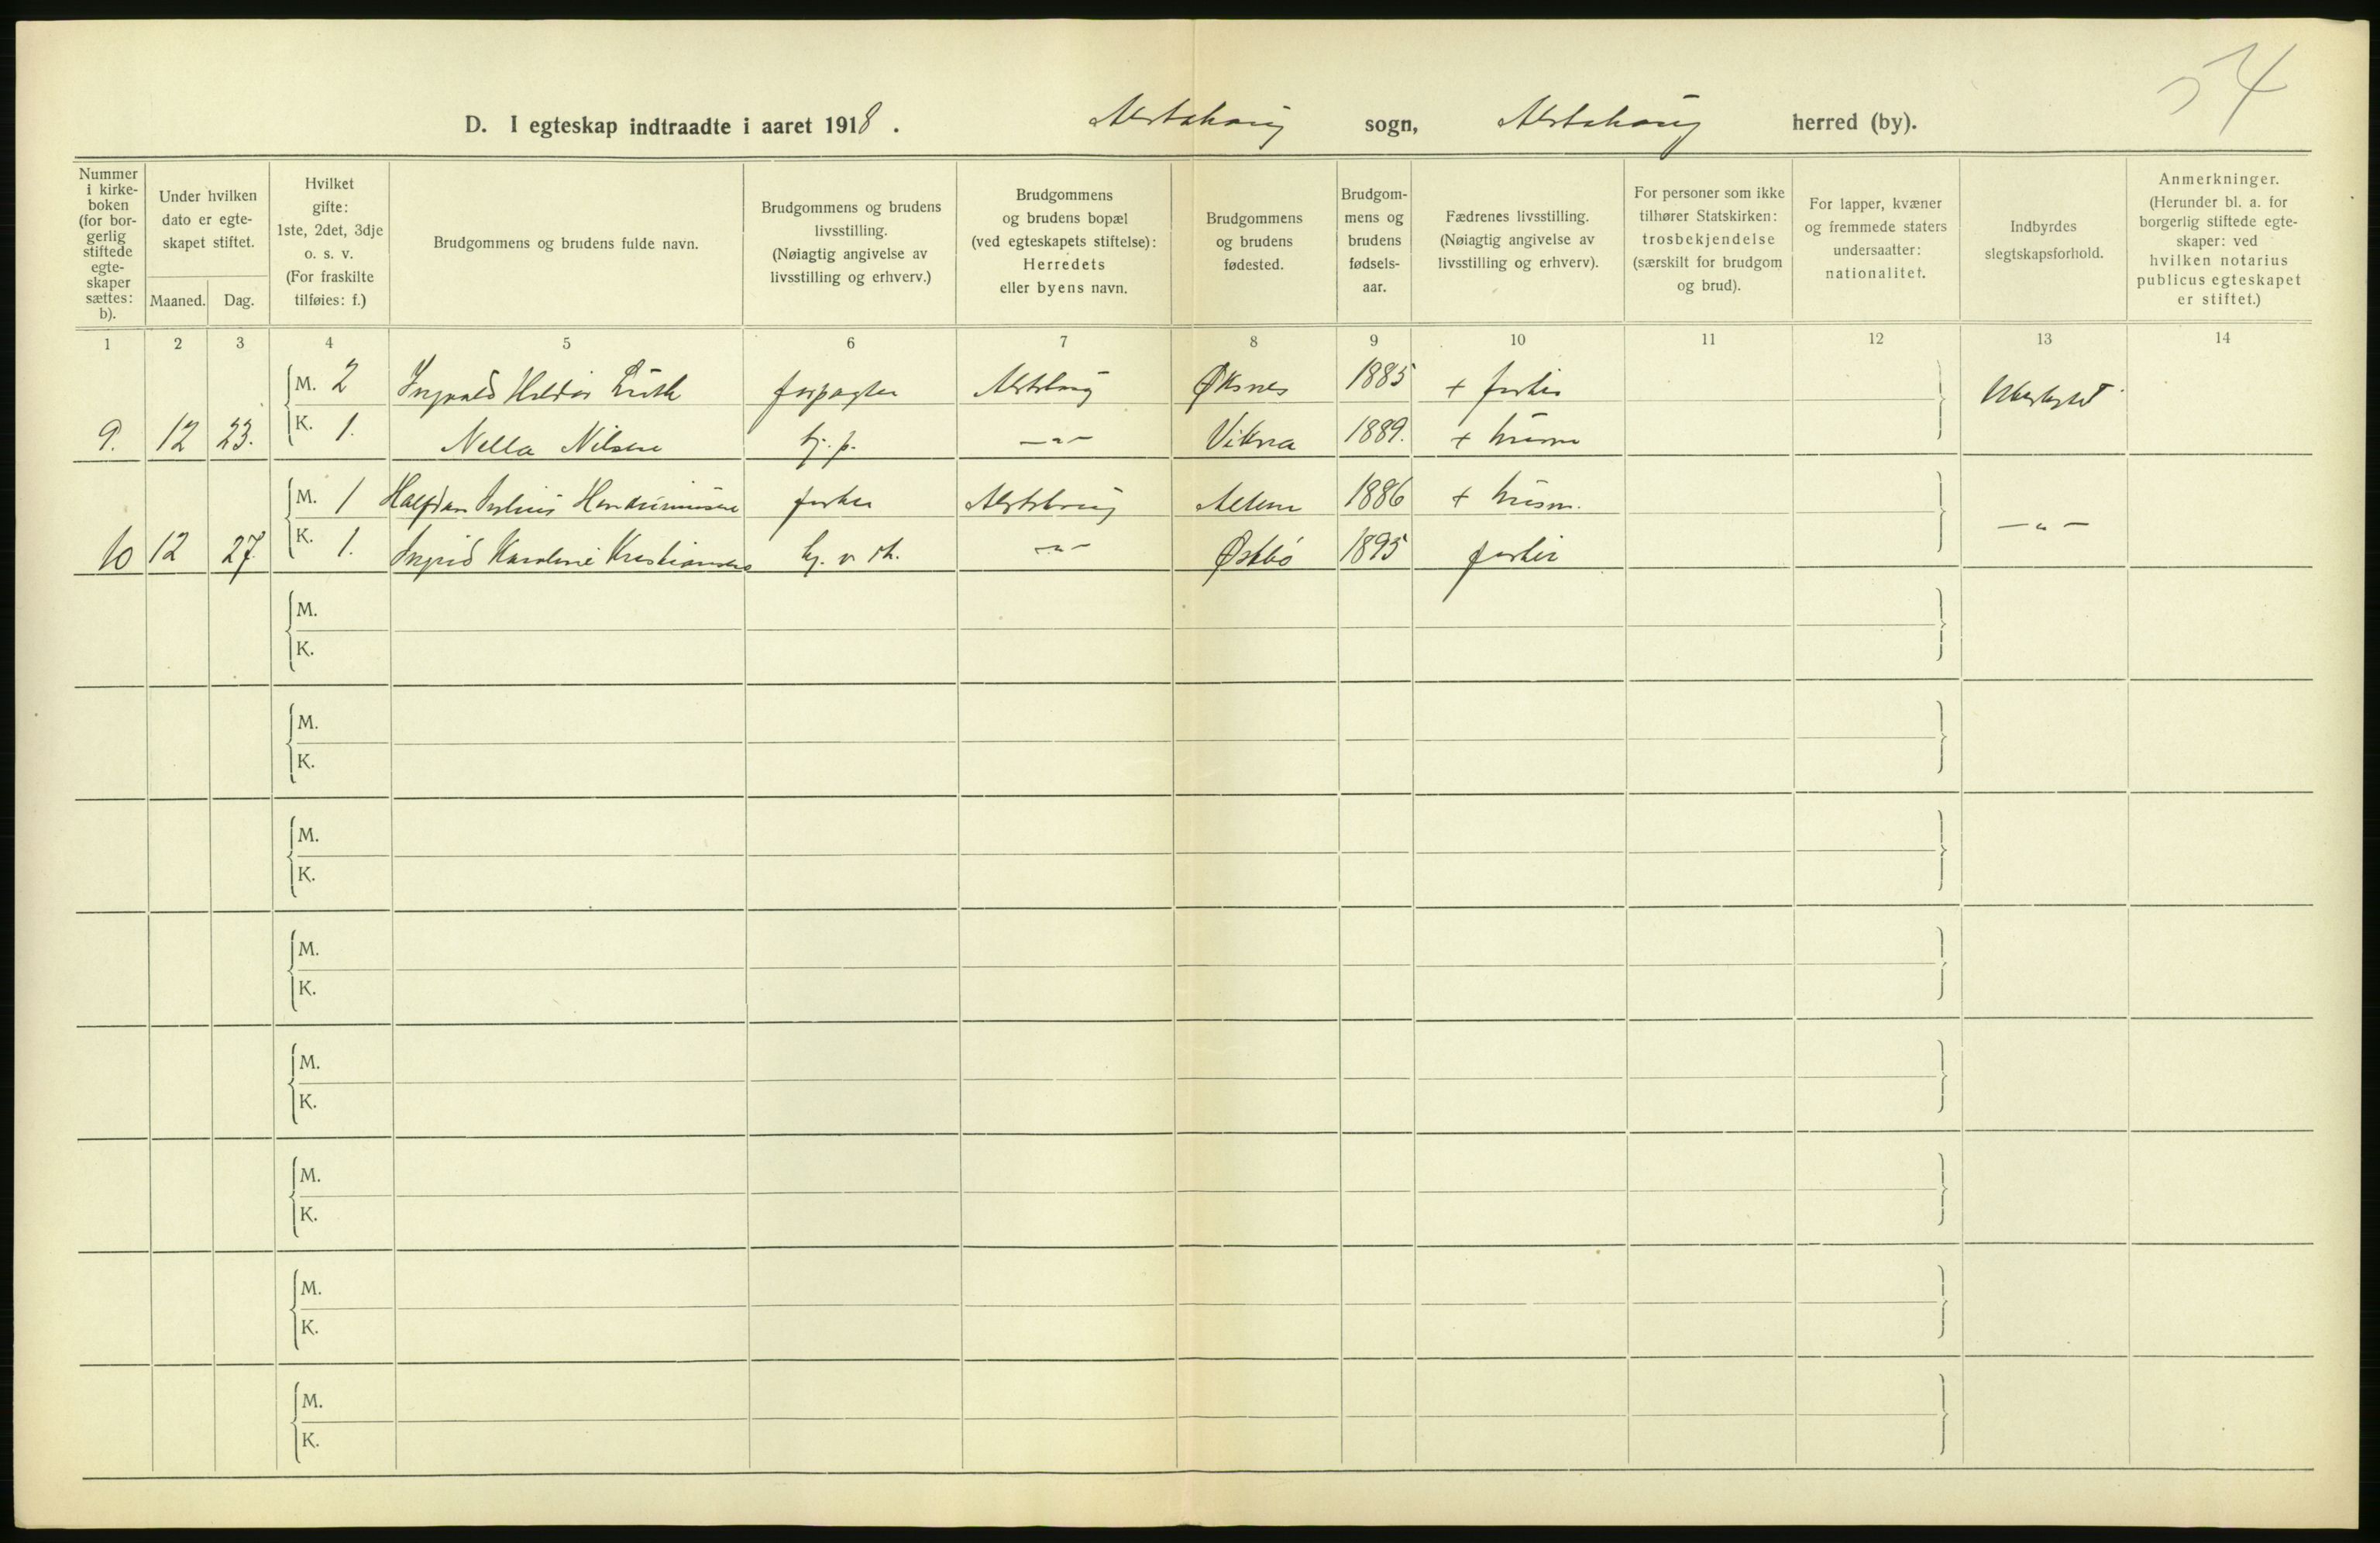 54
D. I egteskap indtraadte i aaret 1918. Alstahaug sogn, Alstahaug herred (by).
Nummer i kirkeboken (for borgerlig stiftede egteskaper sættes: b).
Under hvilken dato er egteskapet stiftet.
Maaned. Dag.
Hvilket gifte: 1ste, 2det, 3dje o. s. v. (For fraskilte tilføies: f.)
Brudgommens og brudens fulde navn.
Brudgommens og brudens livsstilling. (Nøiagtig angivelse av livsstilling og erhverv.)
Brudgommens og brudens bopæl (ved egteskapets stiftelse): Herredets eller byens navn.
Brudgommens og brudens fødested.
Brudgommens og brudens fødselsaar.
Fædrenes livsstilling. (Nøiagtig angivelse av livsstilling og erhverv).
For personer som ikke tilhører Statskirken: trosbekjendelse (særskilt for brudgom og brud).
For lapper, kvæner og fremmede staters undersaatter: nationalitet.
Indbyrdes slegtskapsforhold.
Anmerkninger. (Herunder bl. a. for borgerlig stiftede egteskaper: ved hvilken notarius publicus egteskapet er stiftet.)
1 2 3 4 5 6 7 8 9 10 11 12 13 14
M. 2 Ingvald forpagter Alsthaug Øksnes 1885 + fisker Ubeslegtet
9. 12 23. K. 1. Nella Nilsen hj. p. —„— Vikna 1889. + husm
M. 1 Halfdan Julius fisker Alsthaug 1886 + husm. —„—
10 12 27. K. 1. Ingrid Karoline Kristiansen hj. v. m. —„— 1895 fisker
M.
K.
M.
K.
M.
K.
M.
K.
M.
K.
M.
K.
M.
K.
M.
K.